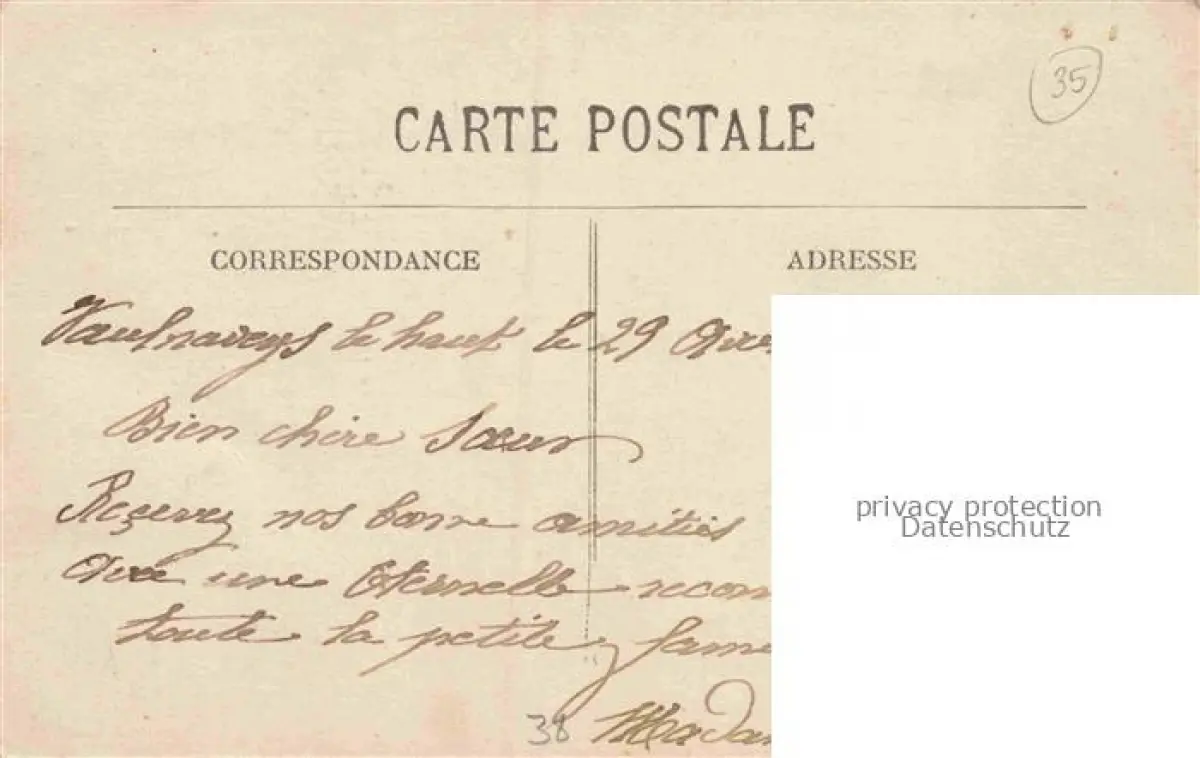 35
CARTE POSTALE
CORRESPONDANCE
ADRESSE
Vaulnaveys le haut le 29
Bien chère Sœur
Reçevez nos bonne amitiés
une Eternelle
toute la petite
38
privacy protection
Datenschutz